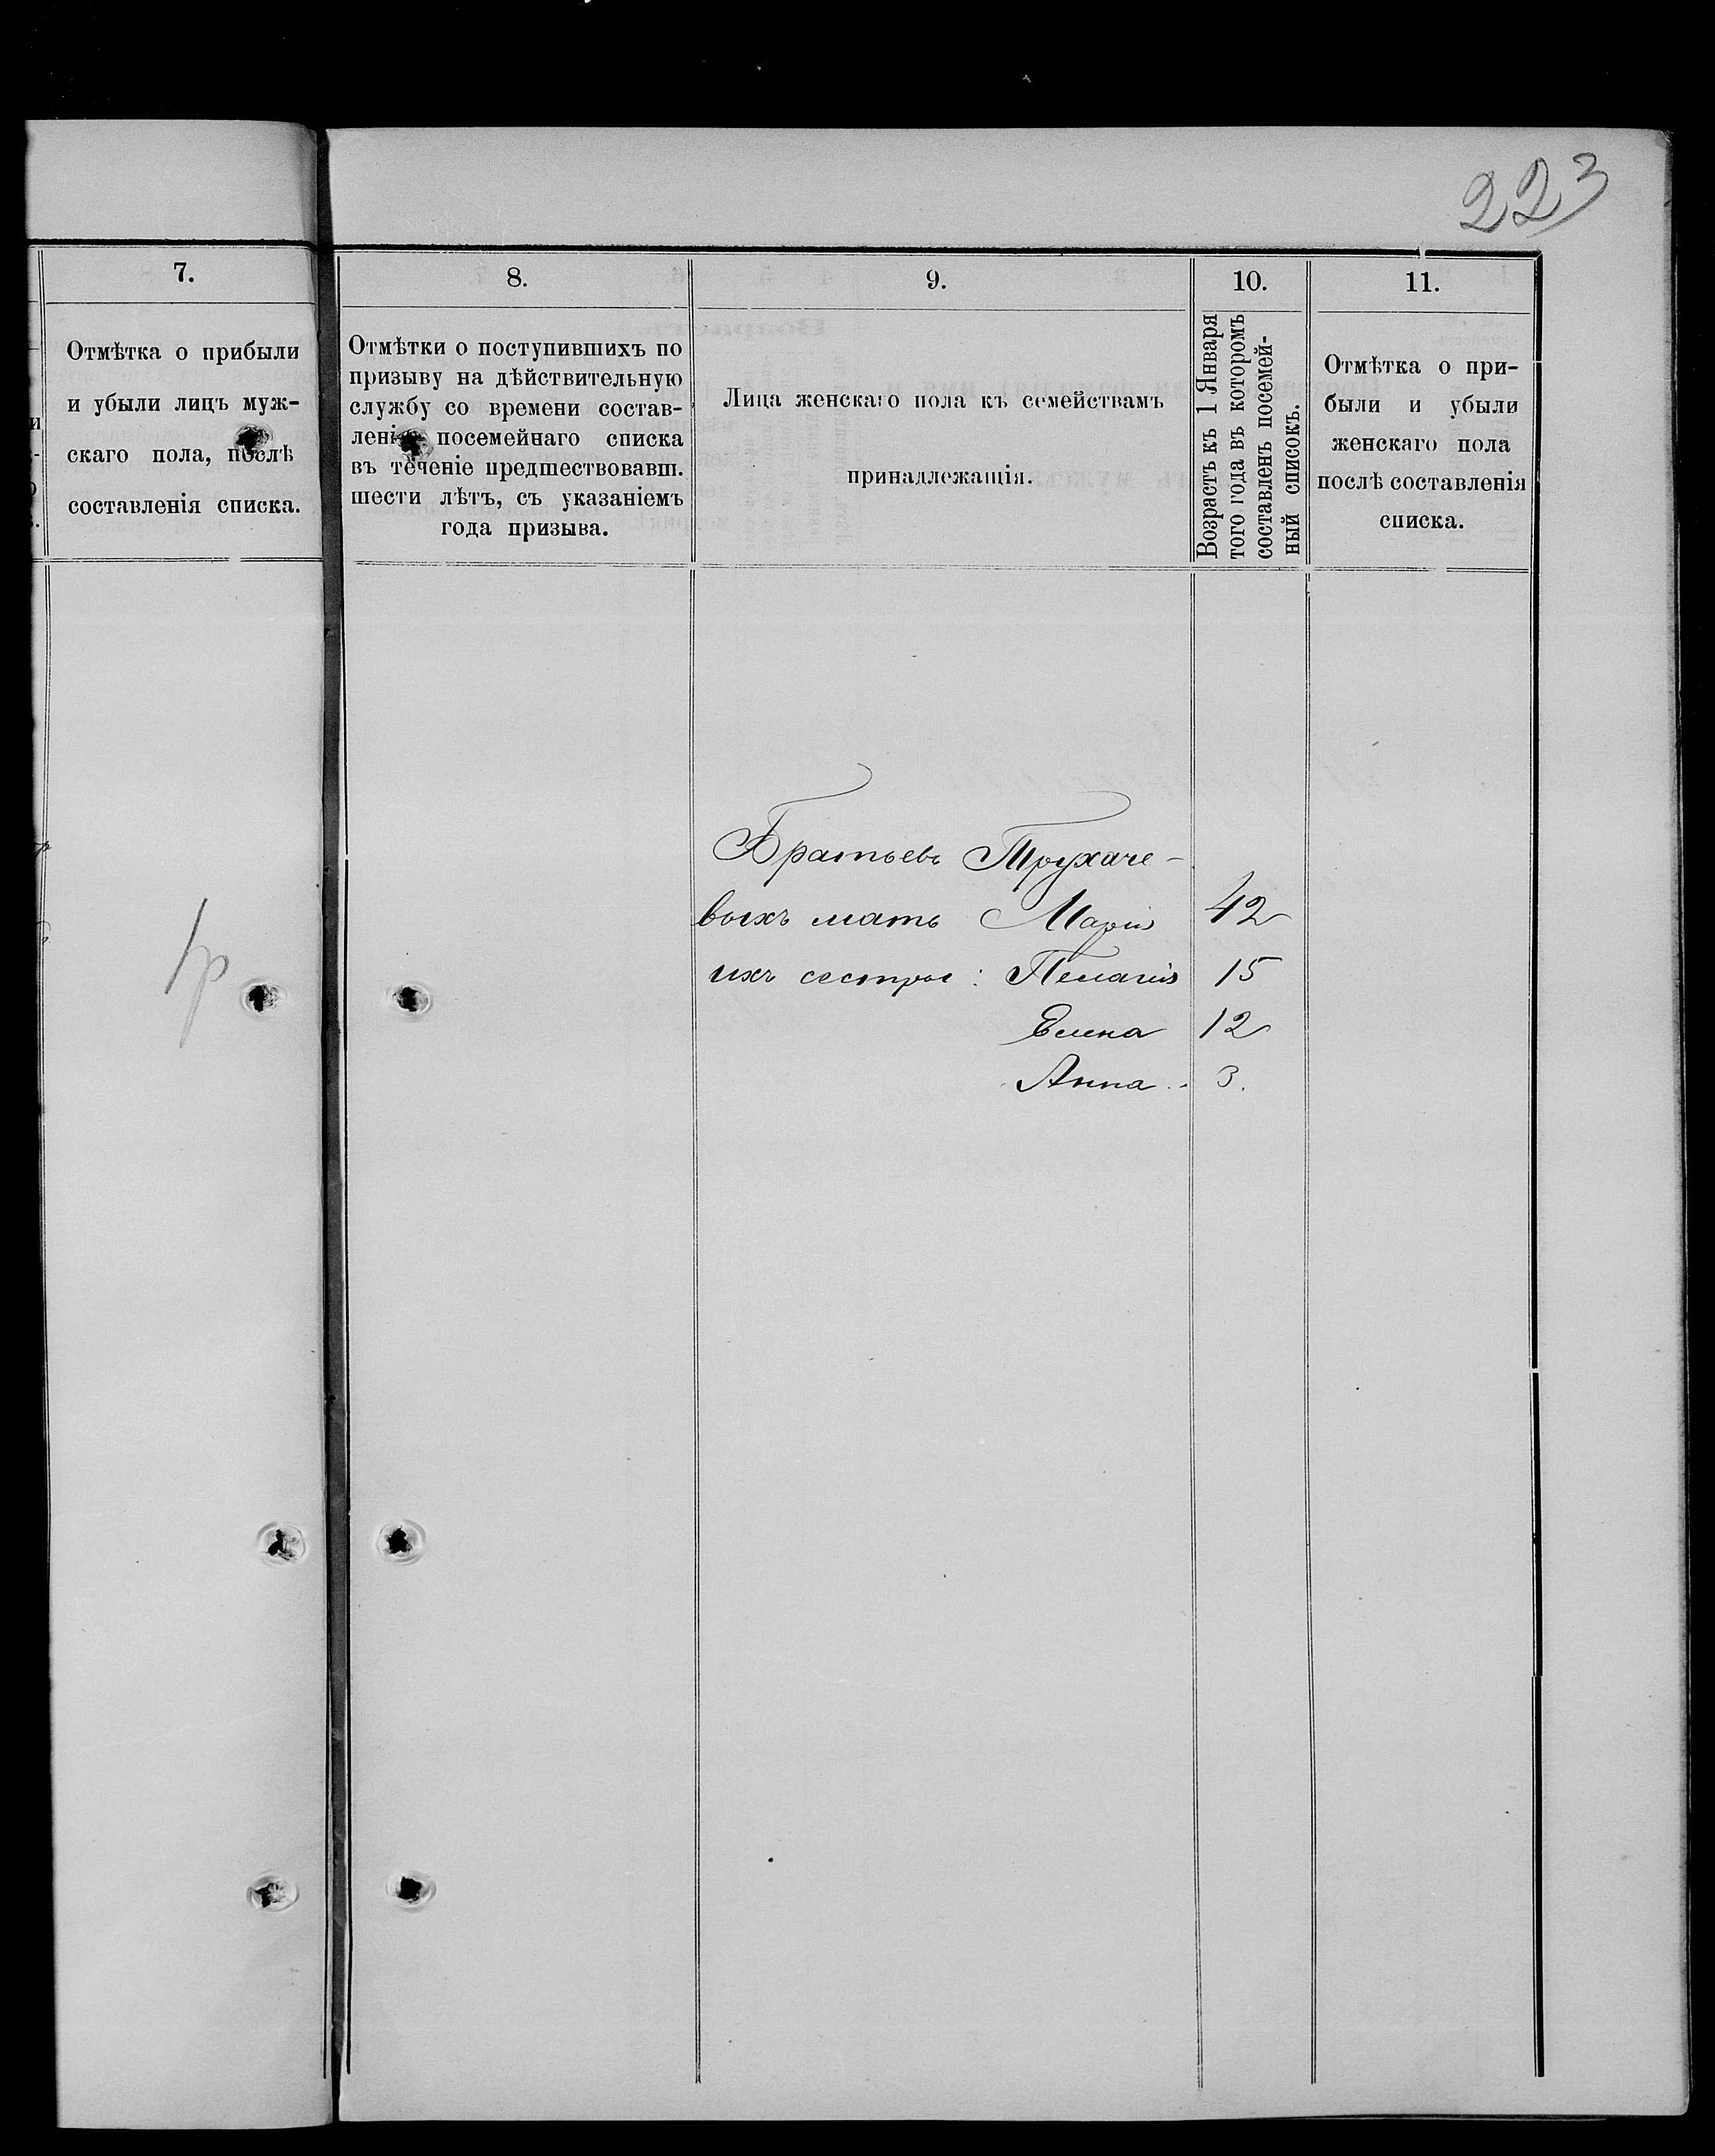 223
7.
Отмѣтка о прибыли
и убыли лицъ муж-
скаго пола, послѣ
составленія списка.
8.
Отмѣтки о поступившихъ по
призыву на дѣйствительную
службу со времени состав-
ленія посемейнаго списка
въ теченіе предшествовавш.
шести лѣтъ, съ указаніемъ
года призыва.
9.
Лица женскаго пола къ семействамъ
принадлежащія.
10.
Возрастъ къ 1 Января
того года въ которомъ
составленъ посемей-
ный списокъ.
11.
Отмѣтка о при-
были и убыли
женскаго пола
послѣ составленія
списка.
Братьевъ Трухаче-
выхъ мать Марія 42
ихъ сестры: Пелагія 15
Елена 12
Анна 3.